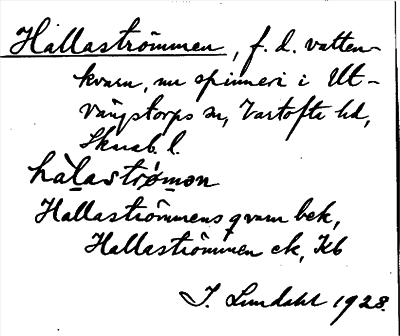 Hållaströmmen, f. d. vatten-
kvarn, nu spinneri i Ut-
vängstorps sn, Vartofta hd,
Skarab. l.
hålaströmən
Hallaströmmens qvarn bek,
Hallaströmmen ek, Kb
J. Lundahl 1928.